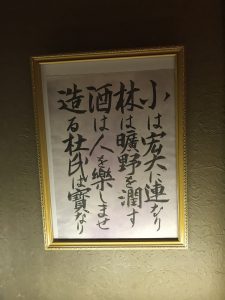 小は宏大に連なり
林は曠野を潤す
酒は人を樂しませ
造る杜氏は寶なり